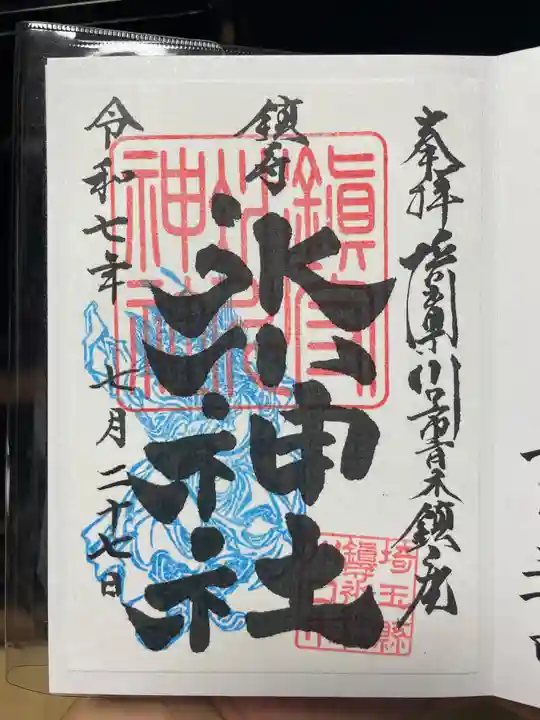 奉拝 埼玉県川口市青木鎮座
鎮守
氷川神社
令和七年 七月二十七日
鎮守氷川神社
埼玉縣